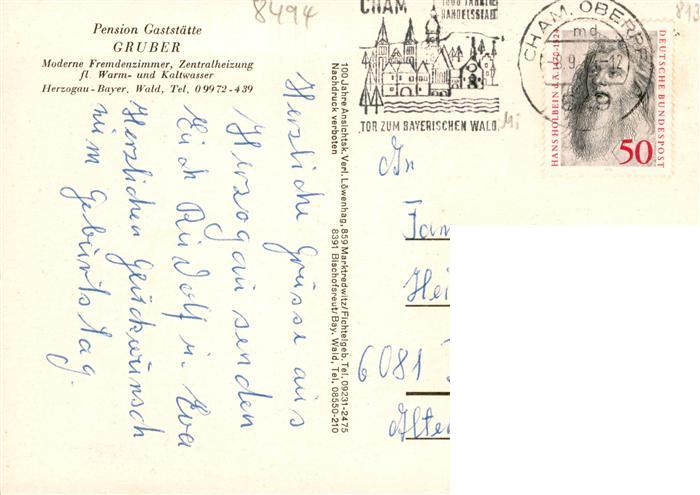 8494
813
Pension Gaststätte
GRUBER
Moderne Fremdenzimmer, Zentralheizung
fl. Warm- und Kaltwasser
Herzogau-Bayer. Wald, Tel. 0 99 72 - 439
CHAM
1000 JÄHRIGE
HANDELSSTADT
TOR ZUM BAYERISCHEN WALD
CHAM, OBERPF
md
HANS HOLBEIN d.Ä. 1470-1524
DEUTSCHE BUNDESPOST
50
100 Jahre Ansichtsk. Verl. Löwenhag, 859 Marktredwitz/Fichtelgeb. Tel. 09231-2475
Nachdruck verboten
8391 Bischofsreut/Bay. Wald, Tel. 08550-210
Herzliche Grüsse aus
Herzogau senden
Euch Rudolf u. Eva
Herzlichen Glückwunsch
zum Geburtstag.
An
Fam
Hei
6081